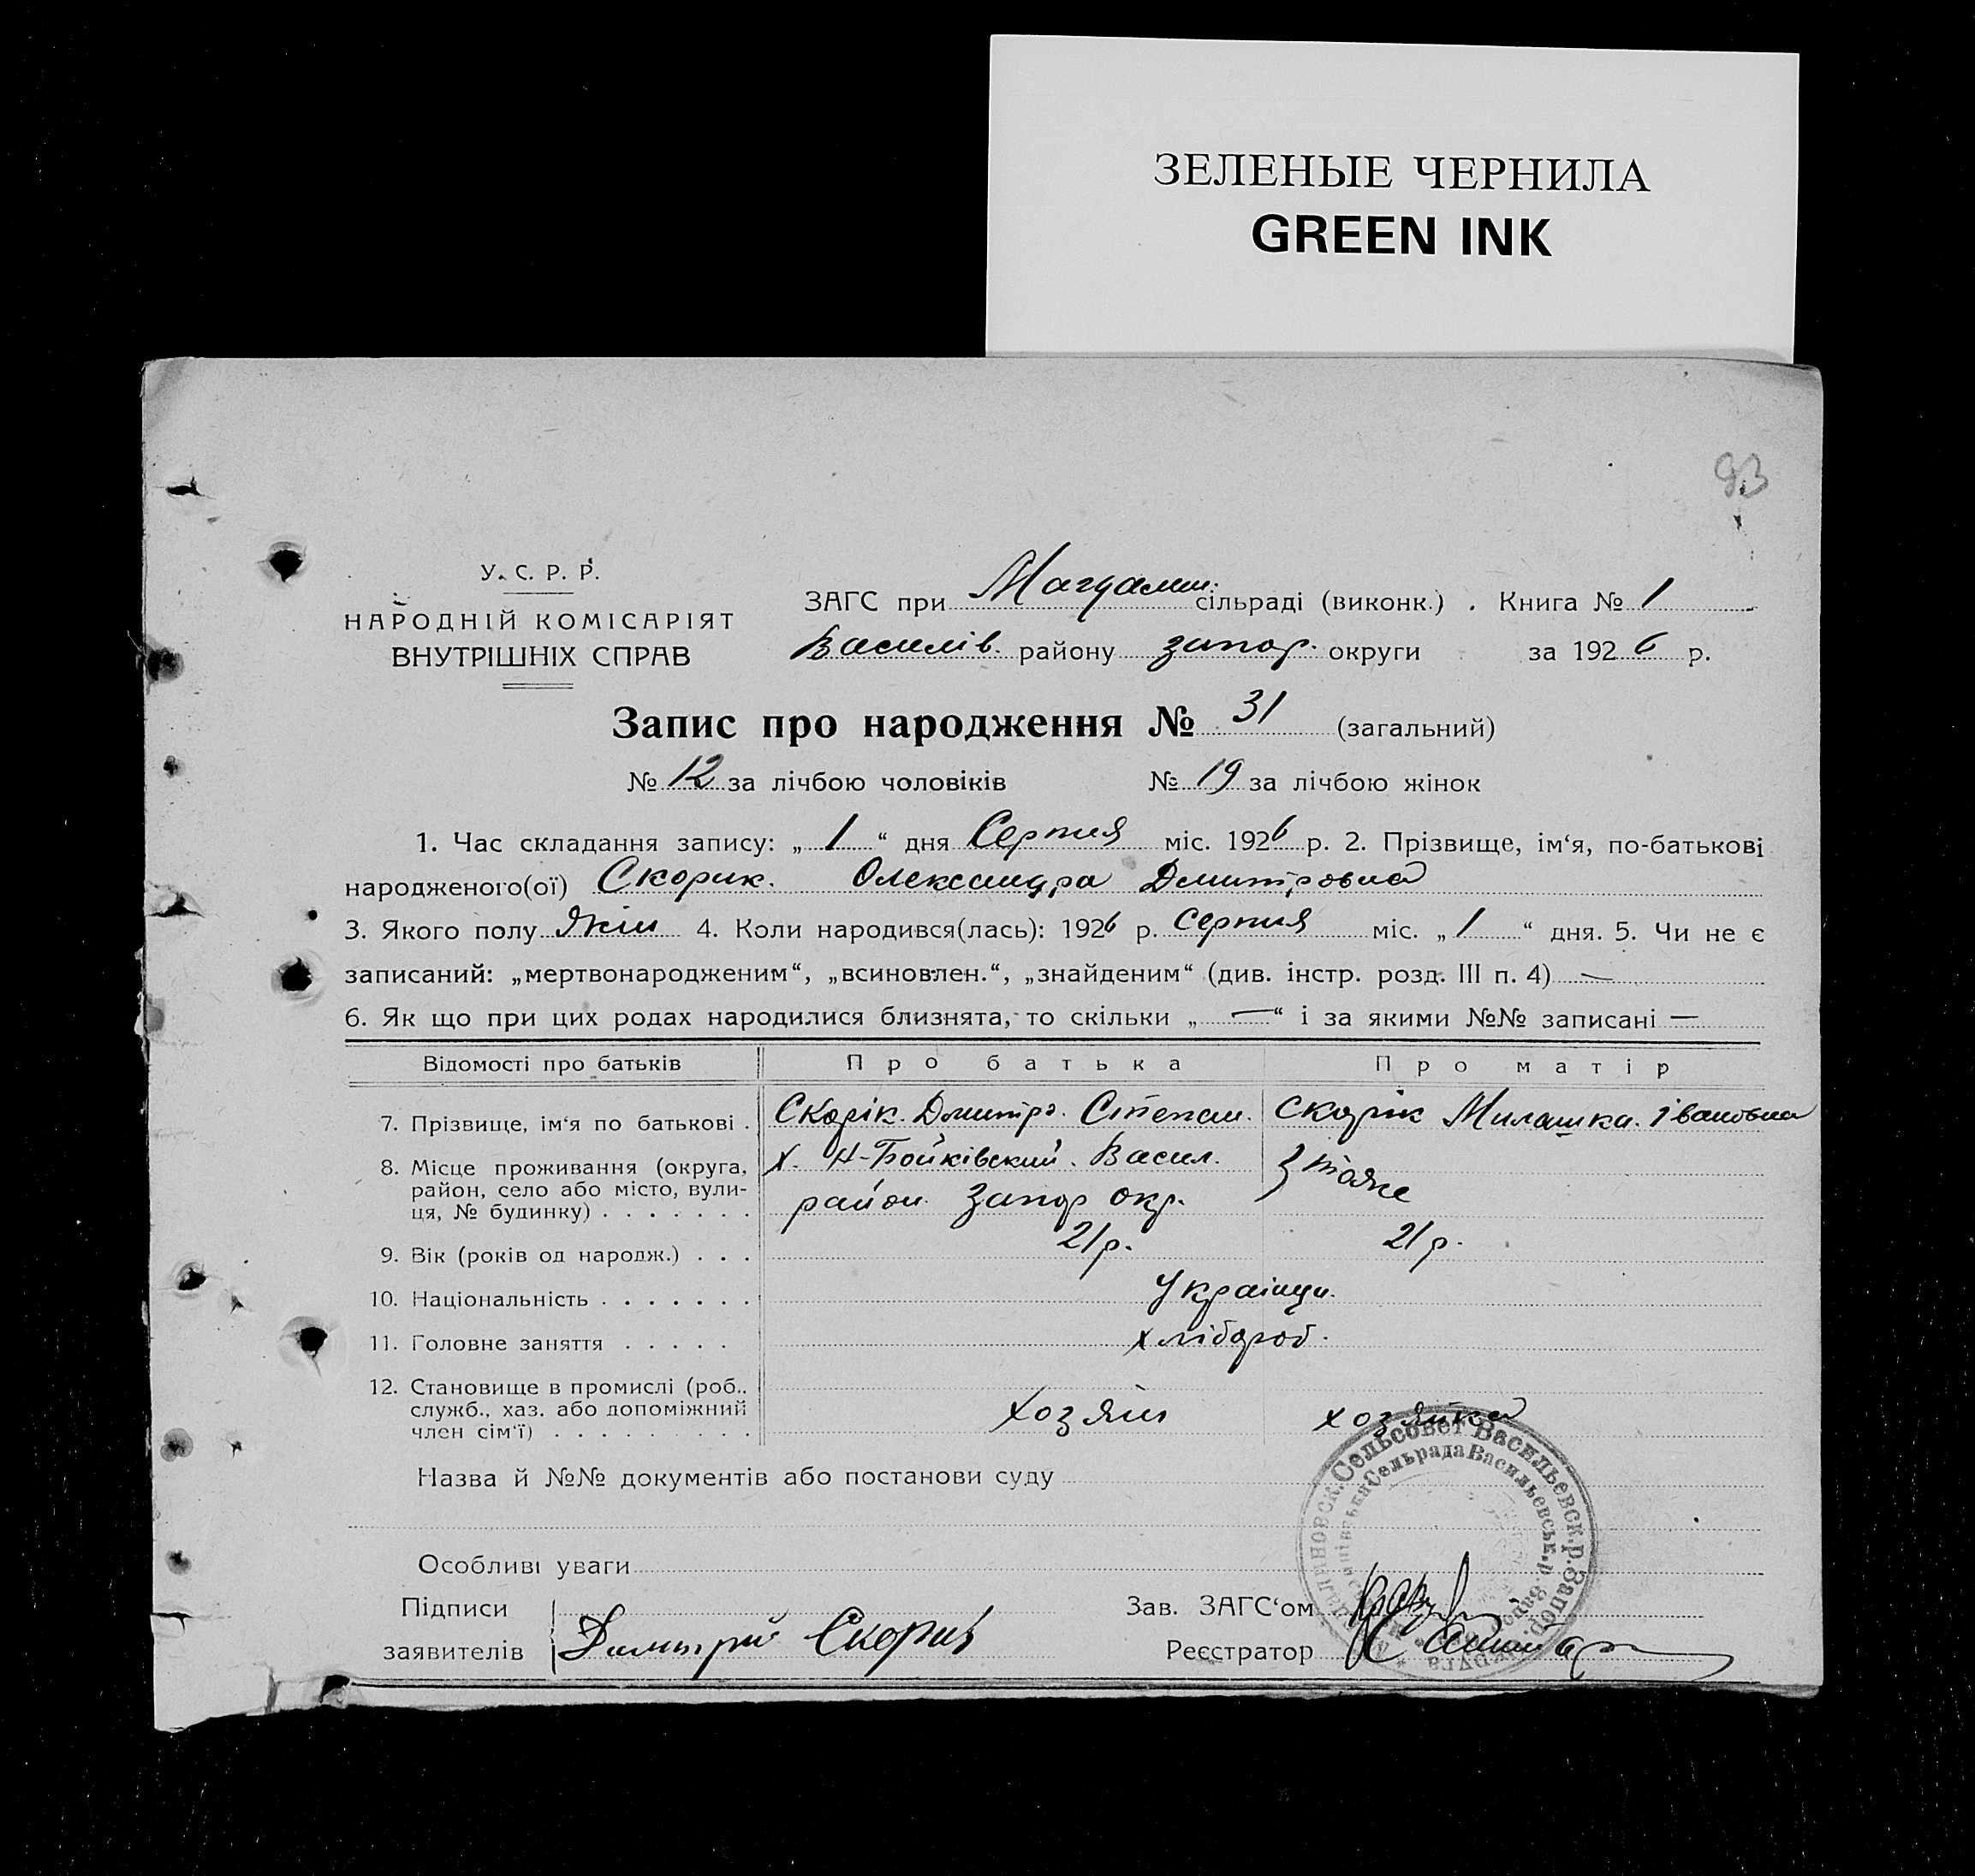 ЗЕЛЕНЫЕ ЧЕРНИЛА
GREEN INK
93
У. С. Р. Р.
НАРОДНІЙ КОМІСАРІЯТ
ВНУТРІШНІХ СПРАВ
ЗАГС при Магдалин. сільраді (виконк.) . Книга № 1
Василів. району запор. округи за 1926 р.
Запис про народження № 31 (загальний)
№ 12 за лічбою чоловіків № 19 за лічбою жінок
1. Час складання запису: „ 1 “ дня Серпня міс. 1926 р. 2. Прізвище, ім‘я, по-батькові
народженого(ої) Скорик. Олександра Дмитровна
3. Якого полу Жін 4. Коли народився(лась): 1926 р. Серпня міс. „ 1 “ дня. 5. Чи не є
записаний: „мертвонародженим“, „всиновлен.“, „знайденим“ (див. інстр. розд. III п. 4) —
6. Як що при цих родах народилися близнята, то скільки „ — “ і за якими №№ записані —
Відомості про батьків Про батька Про матір
7. Прізвище, ім‘я по батькові . Скорік. Дмитро. Степан. Скорік Милашка. Івановна
8. Місце проживання (округа, район, село або місто, вулиця, № будинку) . . . . . . . х. Н-Бойківский. Васил.
район Запор окр. тоже
9. Вік (років од народж.) . . . 21 р. 21 р.
10. Національність . . . . . . . Українци.
11. Головне заняття . . . . . хлібороб.
12. Становище в промислі (роб.. служб., хаз. або допоміжний член сім‘ї) . . . . . . . . . хозяін хозяйка
Назва й №№ документів або постанови суду
Сельсовет Васильевск. р. Запор.
Сельрада Васильевськ. р. Запор.
Особливі уваги
Підписи
заявителів Димитрий Скорик
Зав. ЗАГС‘ом
Реєстратор